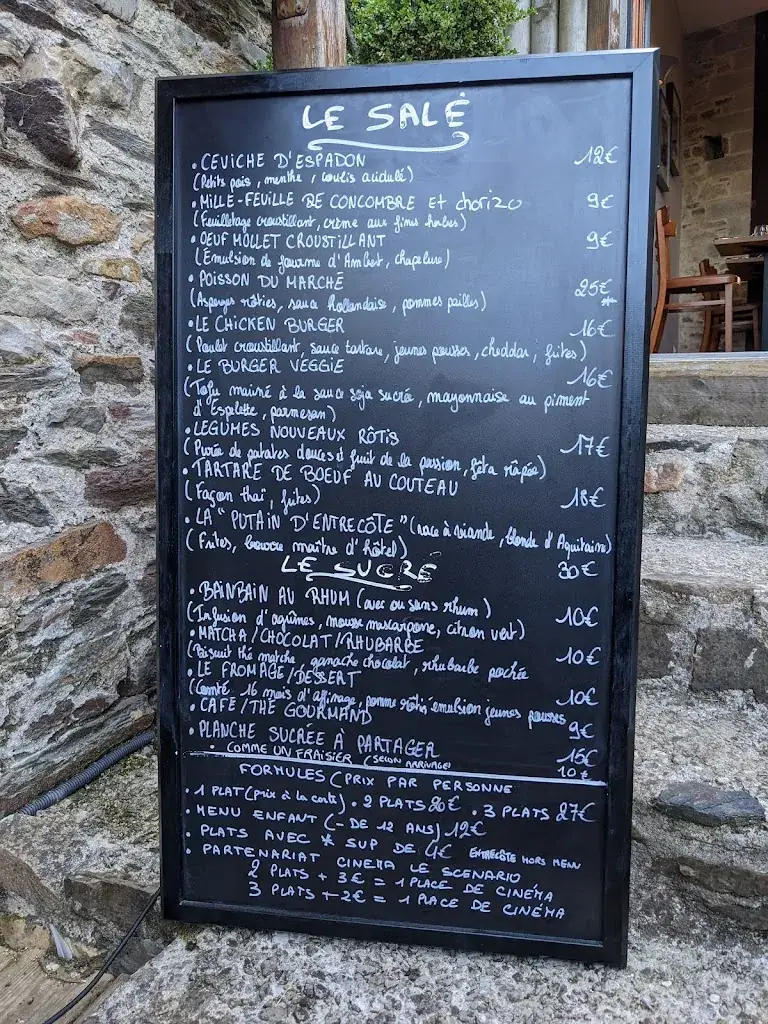 LE SALÉ
• CEVICHE D'ESPADON 12€
(Petits pois, menthe, coulis acidulé)
• MILLE-FEUILLE DE CONCOMBRE Et chorizo 9€
(Feuilletage croustillant, crème aux fines herbes)
• OEUF MOLLET CROUSTILLANT 9€
(Émulsion de fourme d'Ambert, chapelure)
• POISSON DU MARCHÉ 25€*
(Asperges rôties, sauce hollandaise, pommes pailles)
• LE CHICKEN BURGER 16€
(Poulet croustillant, sauce tartare, jeunes pousses, cheddar, frites)
• LE BURGER VEGGIE 16€
(Tofu mariné à la sauce soja sucrée, mayonnaise au piment
d'Espelette, parmesan)
• LEGUMES NOUVEAUX RÔTIS 17€
(Purée de patates douces et fruit de la passion, fêta râpée)
• TARTARE DE BOEUF AU COUTEAU 18€
(Façon thaï, frites)
• LA "PUTAIN D'ENTRECÔTE" (race à viande, blonde d'Aquitaine)
(Frites, beurre maître d'hôtel) 30€
LE SUCRÉ
• BAINBAIN AU RHUM (avec ou sans rhum) 10€
(Infusion d'agrumes, mousse mascarpone, citron vert)
• MATCHA/CHOCOLAT/RHUBARBE 10€
(Biscuit thé matcha, ganache chocolat, rhubarbe pochée
• LE FROMAGE/DESSERT 10€
(Comté 16 mois d'affinage, pomme rôtie émulsion jeunes pousses
• CAFÉ/THÉ GOURMAND 9€
• PLANCHE SUCRÉE À PARTAGER 15€
• COMME UN FRAISIER (SELON ARRIVAGE) 10€
FORMULES (PRIX PAR PERSONNE
• 1 PLAT (prix à la carte) • 2 PLATS 20€ • 3 PLATS 27€
MENU ENFANT (- DE 12 ANS) 12€
• PLATS AVEC * SUP DE 4€ ENTRECÔTE HORS MENU
• PARTENARIAT CINEMA LE SCENARIO
2 PLATS + 3€ = 1 PLACE DE CINÉMA
3 PLATS + 2€ = 1 PLACE DE CINÉMA